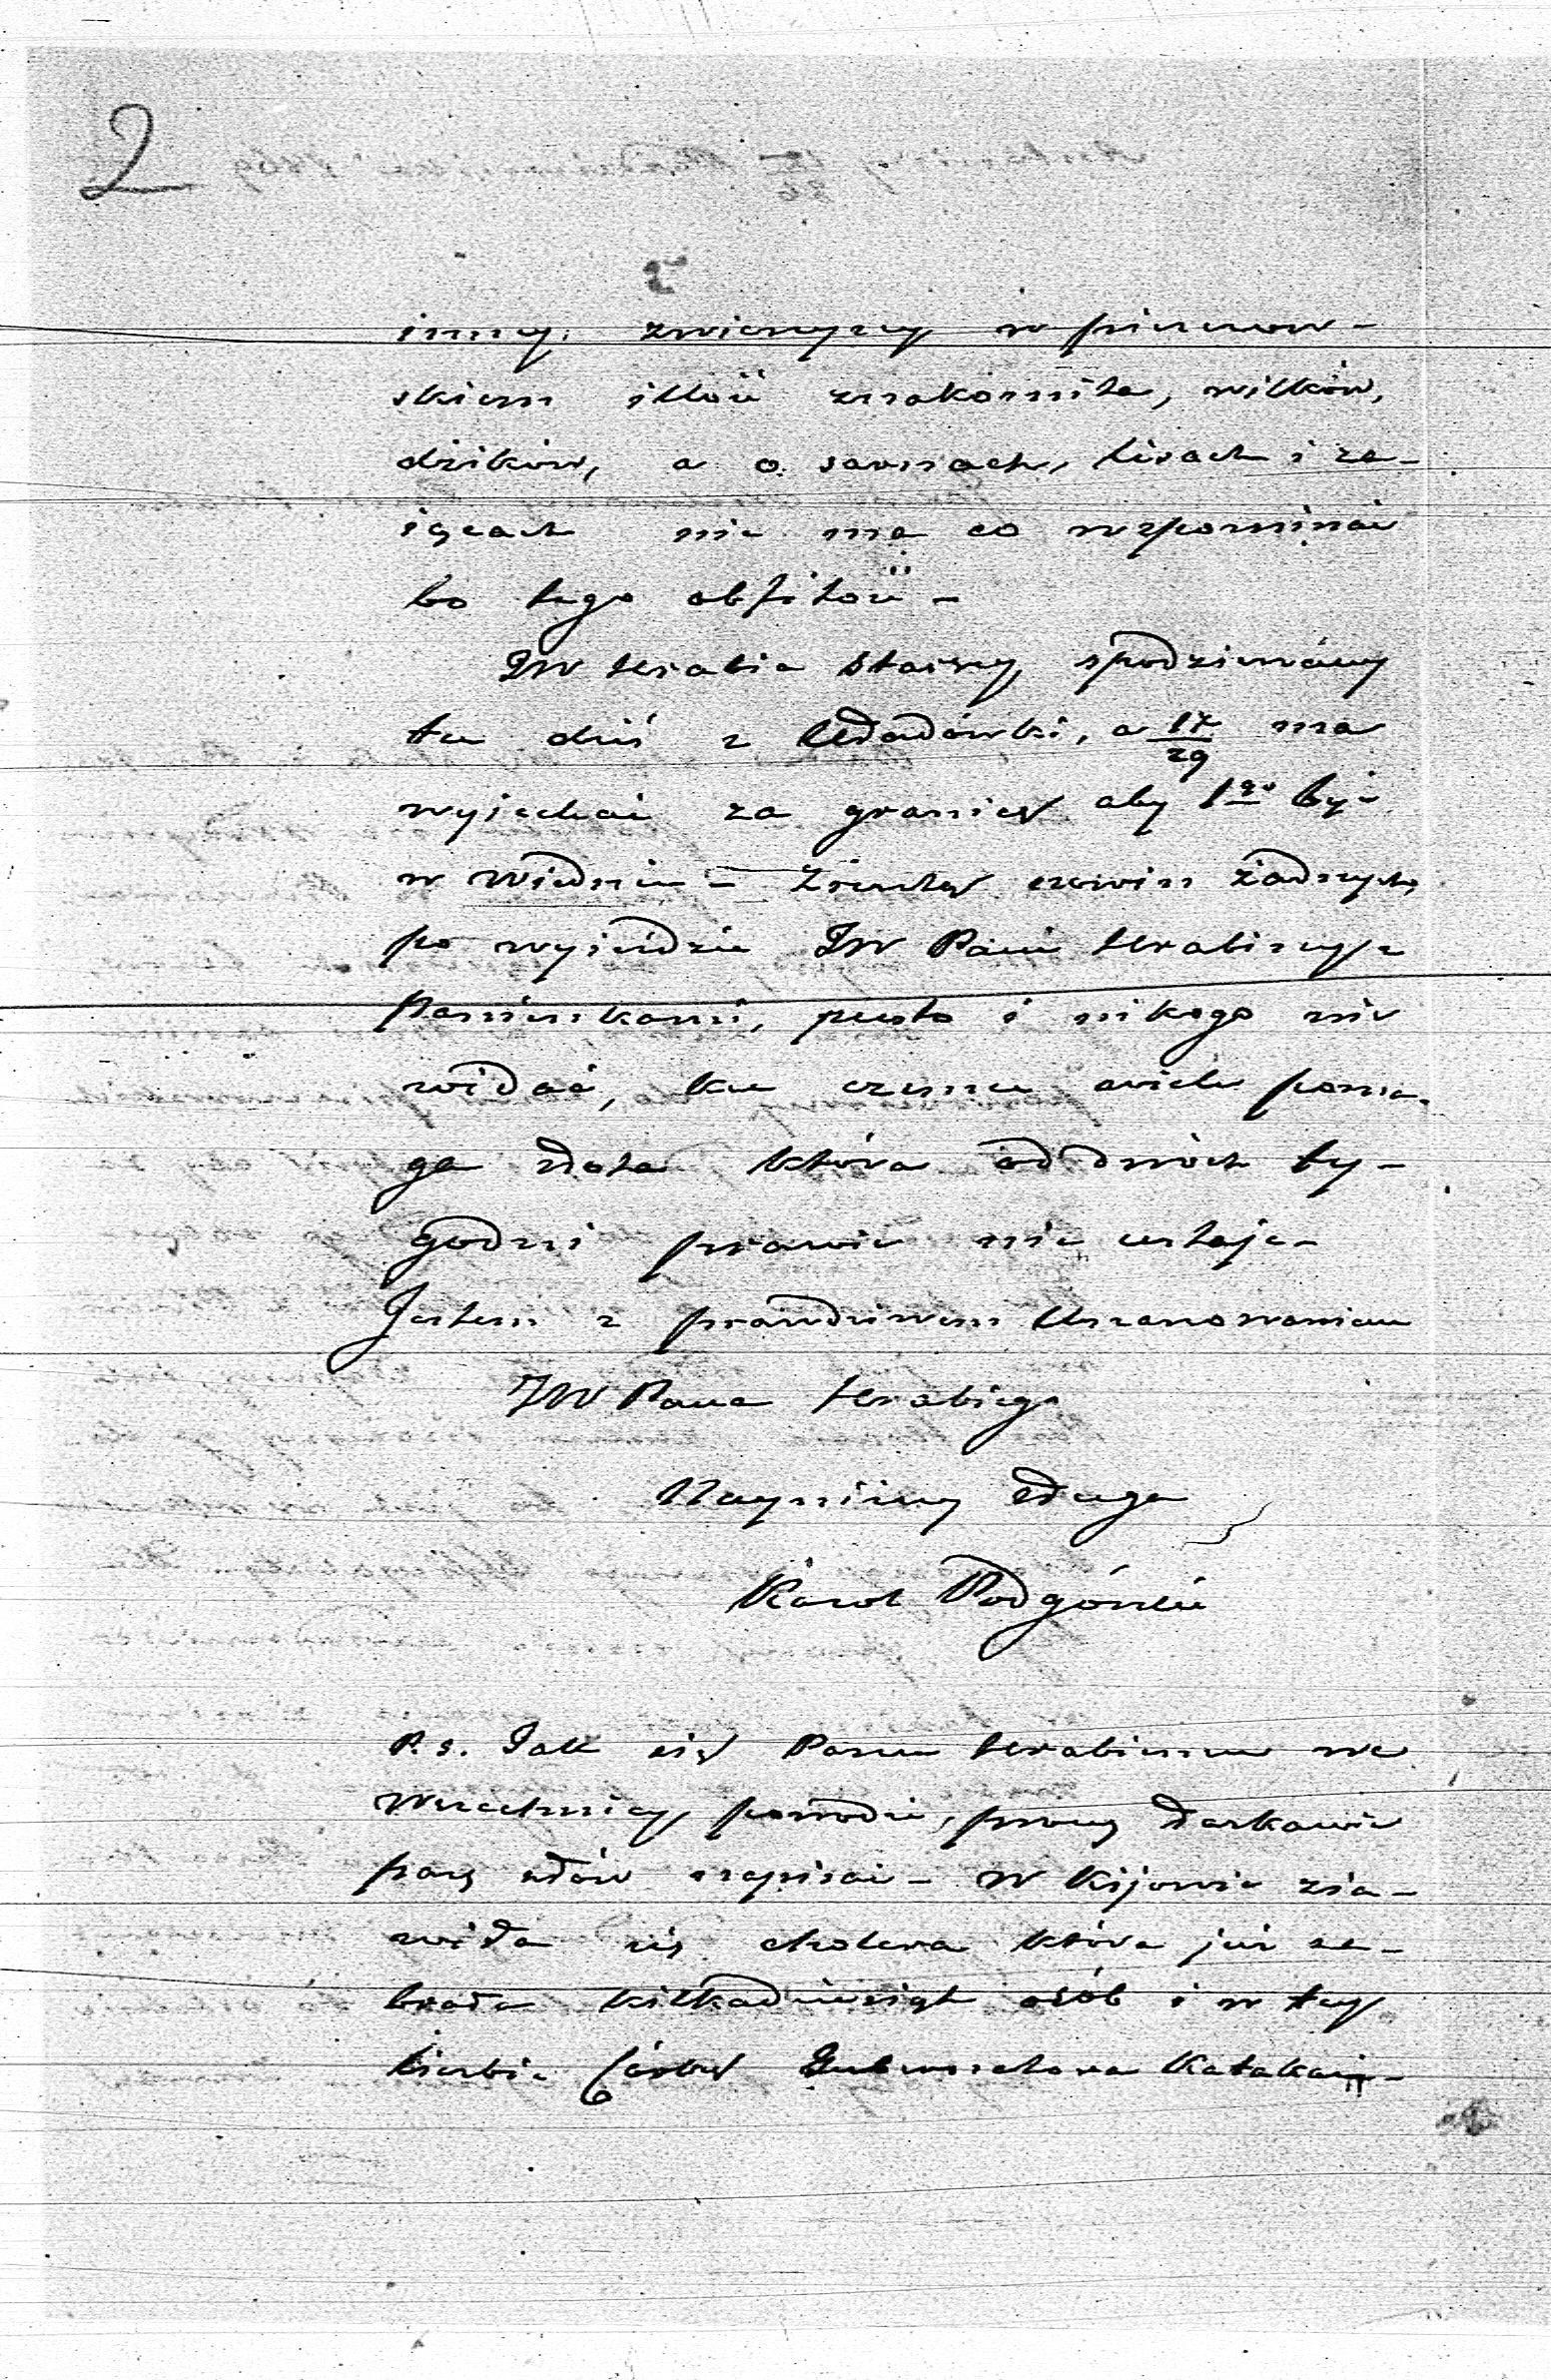 2
inney. zwierzyny w pieczow-
skiem ilość znakomita, wilków,
dzików, a o sarnach, lisach i za-
iącach nie ma co wspominać
bo tego obfitość -
JW Hrabia Starszy, spodziewany
tu dziś z Ładadówki, a 17/29 ma
wyjechać za granicę aby 1go być
w Wiedniu - Zresztą nowin żadnych,
po wyjeździe JW Pani Hrabiny z
Panienkami, pusto i nikogo nie
widać, ku czemu wiele poma-
ga słota która od dwóch ty-
godni prawie nie ustaje -
Jestem z prawdziwem Uszanowaniem
JW Pana Hrabiego
Nayniższy Sługa
Karol Podgórski
P.s. Jak się Panu Hrabiemu we
Wszechnicy powodzi, proszę łaskawie
parę słów napisać - W Kijowie zja-
wiła się cholera która już za-
brała kilkadziesiąt osób i w tey
liczbie Córkę